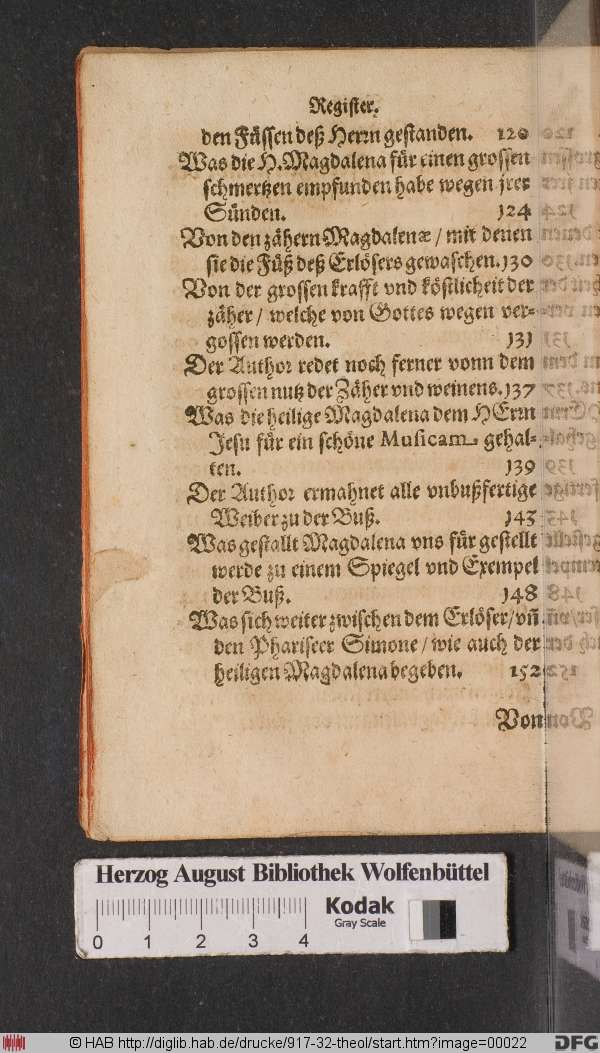 Register.
den Füssen deß Herrn gestanden. 120
Was die H. Magdalena für einen grossen
schmertzen empfunden habe wegen jrer
Sünden. 124
Von den zähern Magdalenæ / mit denen
sie die Füß deß Erlösers gewaschen. 130
Von der grossen krafft vnd köstlicheit der
zäher / welche von Gottes wegen ver-
gossen werden. 131
Der Author redet noch ferner vonn dem
grossen nutz der Zäher vnd weinens. 137
Was die heilige Magdalena dem HErrn
Jesu für ein schöne Musicam gehal-
ten. 139
Der Author ermahnet alle vnbußfertige
Weiber zu der Buß. 143
Was gestallt Magdalena vns für gestellt
werde zu einem Spiegel vnd Exempel
der Buß. 148
Was sich weiter zwischen dem Erlöser / vñ
den Phariseer Simone / wie auch der
heiligen Magdalena begeben. 152
Von
Herzog August Bibliothek Wolfenbüttel
0 1 2 3 4
Kodak
Gray Scale
© HAB http://diglib.hab.de/drucke/917-32-theol/start.htm?image=00022
DFG